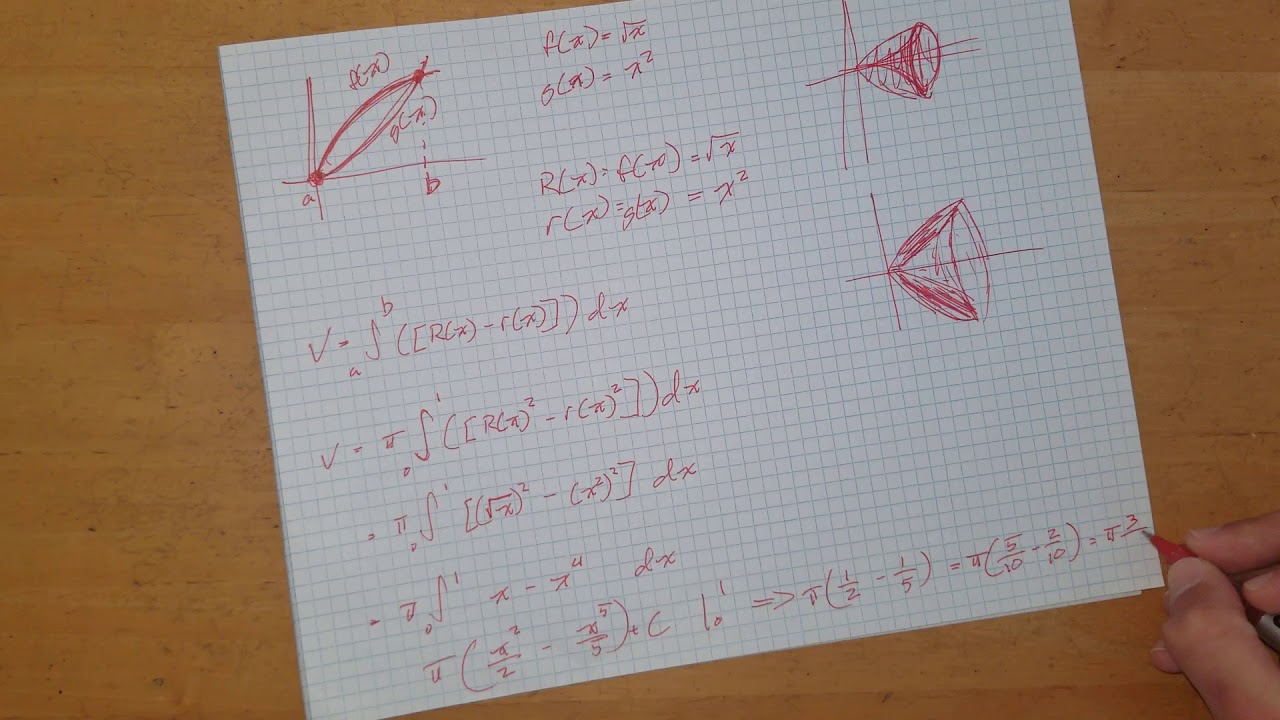 f(x)
g(x)
a
b
f(x) = √x
g(x) = x²
R(x) = f(x) = √x
r(x) = g(x) = x²
V = ₐ∫ᵇ ([R(x) - r(x)]) dx
V = π ₀∫¹ ([R(x)² - r(x)²]) dx
= π ₀∫¹ [(√x)² - (x²)²] dx
= π ₀∫¹ x - x⁴ dx
π(x²/2 - x⁵/5) + C |₀¹ => π(1/2 - 1/5) = π(5/10 - 2/10) = π 3